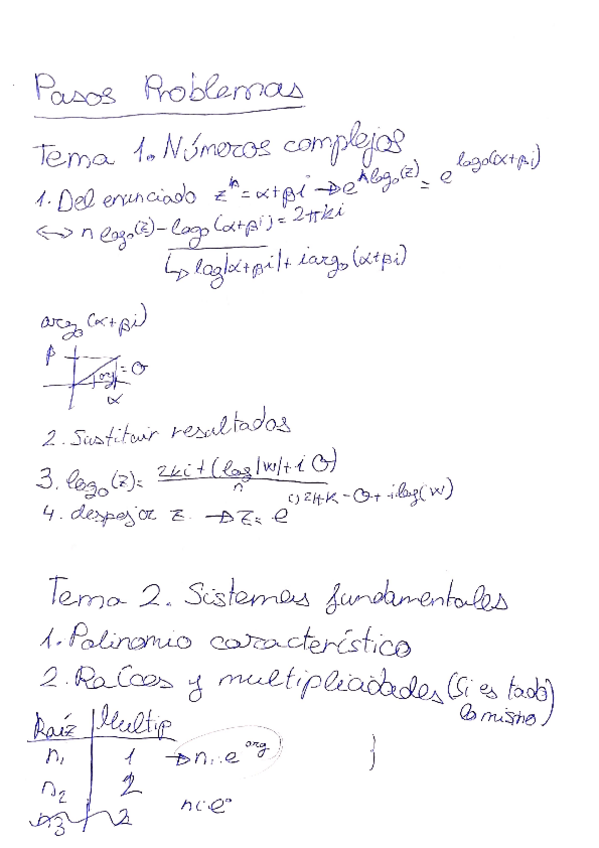 Pasos Problemas
Tema 1. Números complejos
1. Del enunciado z^n = α+βi → e^{n log₀(z)} = e^{log₀(α+βi)}
↔ n log₀(z) - log₀(α+βi) = 2πki
↳ log|α+βi| + i arg₀(α+βi)
arg₀(α+βi)
β
arg = θ
α
2. Sustituir resultados
3. log₀(z) = 2ki + (log|w| + i θ) / n
4. despejar z. → z = e
Tema 2. Sistemas fundamentales
1. Polinomio característico
2. Raíces y multiplicidades (Si es todo
lo mismo)
Raíz | Multip
n₁ 1 → n₁: e^{arg}
n₂ 2
n: e
n3 2